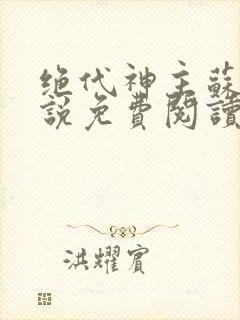 绝代神主蘇
説免費閱讀
洪耀賓